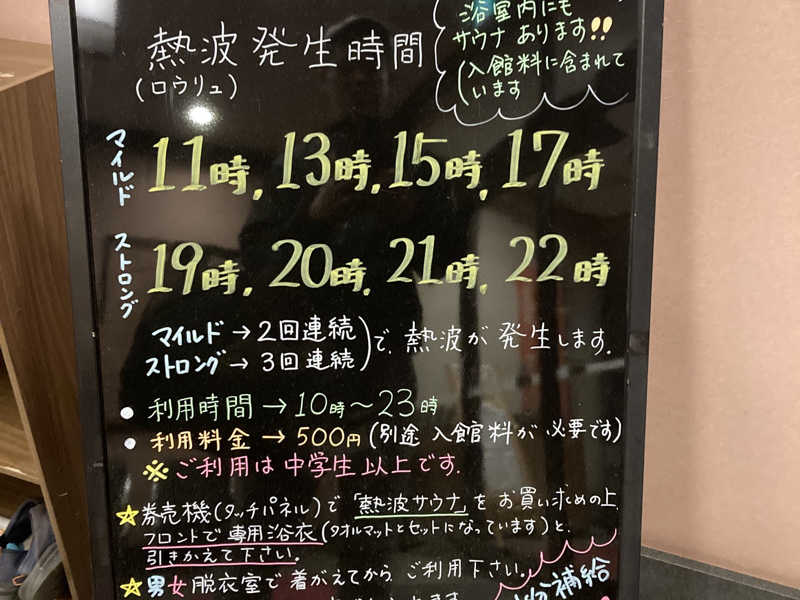 熱波発生時間
(ロウリュ)
浴室内にも
サウナあります!!
(入館料に含まれて
います
マイルド
11時, 13時, 15時, 17時
ストロング
19時, 20時, 21時, 22時
マイルド → 2回連続
ストロング → 3回連続
)で、熱波が発生します。
● 利用時間 → 10時〜23時
● 利用料金 → 500円 (別途 入館料が必要です)
※ ご利用は中学生以上です.
☆ 券売機(タッチパネル)で「熱波サウナ」をお買い求めの上、
フロントで専用浴衣(タオルマットとセットになっています)と、
引きかえて下さい。
☆ 男女脱衣室で着がえてからご利用下さい。
補給